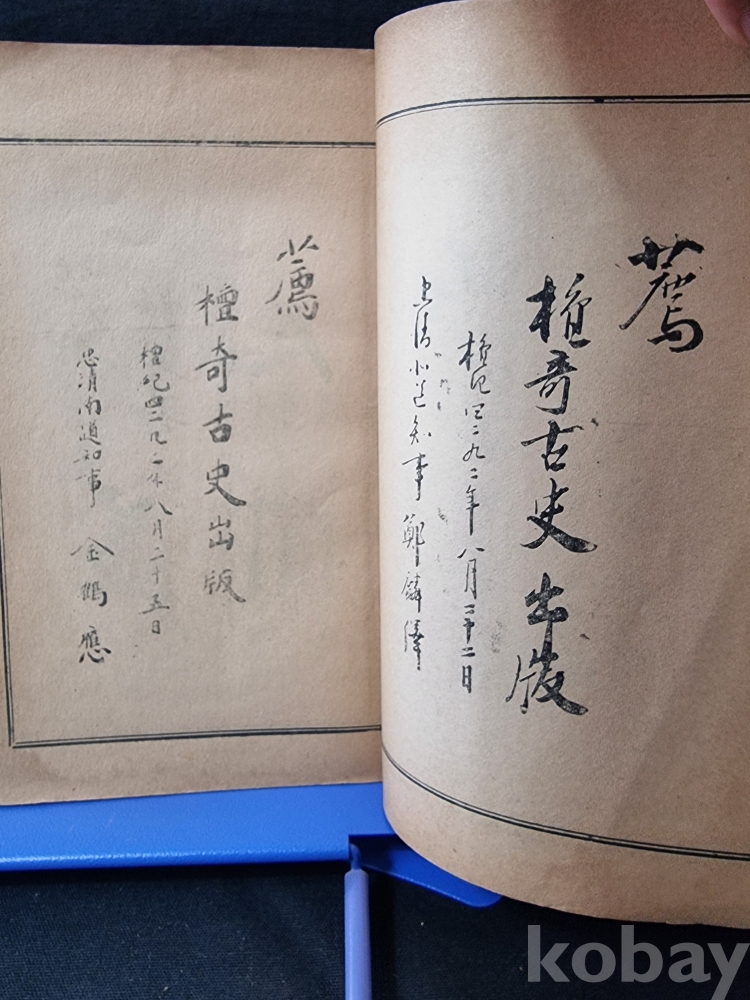 薦
檀奇古史出版
檀紀四二九二年八月二十二日
忠清北道知事 鄭麟澤
薦
檀奇古史出版
檀紀四二九二年八月二十五日
忠淸南道知事 金鶴應
kobay